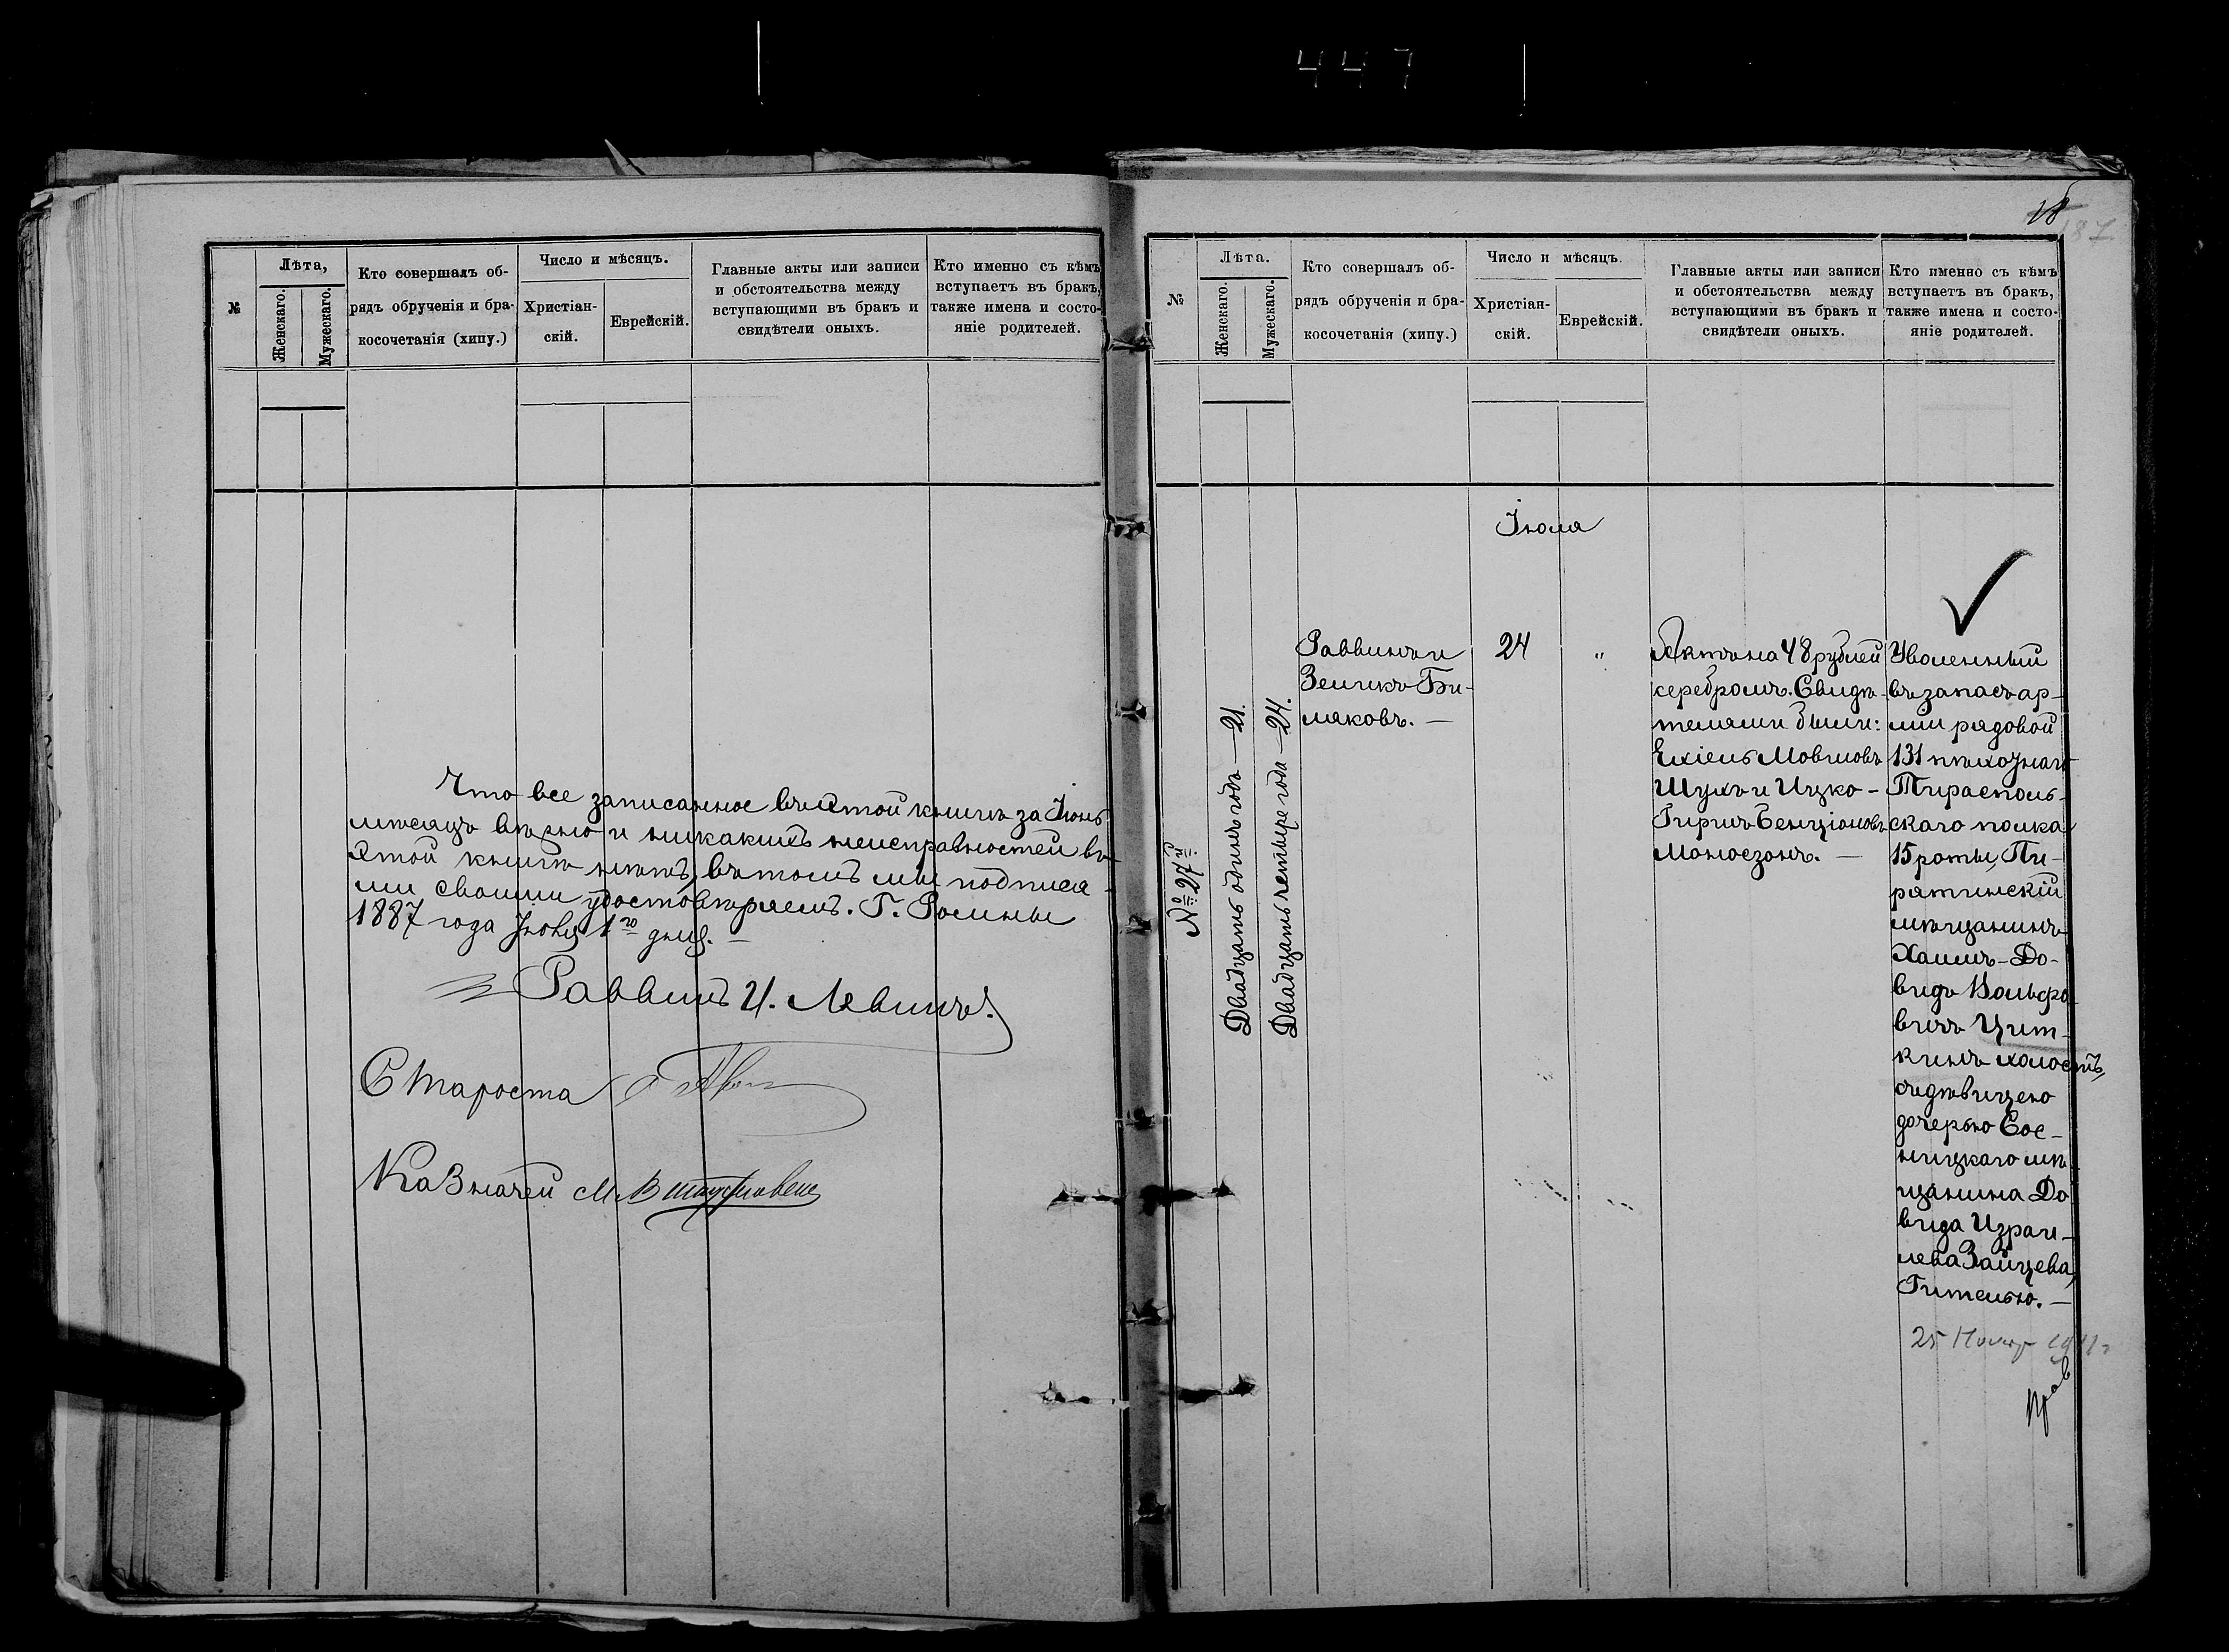 447
№
Лѣта,
Женскаго.
Мужескаго.
Кто совершалъ об-
рядъ обрученія и бра-
косочетанія (хипу.)
Число и мѣсяцъ.
Христіан-
скій.
Еврейскій.
Главные акты или записи
и обстоятельства между
вступающими въ бракъ и
свидѣтели оныхъ.
Кто именно съ кѣмъ
вступаетъ въ бракъ,
также имена и состо-
яніе родителей.
Что все записанное въ этой книгѣ за Іюнь
мѣсяцъ вѣрно и никакихъ неисправностей въ
этой книгѣ нѣтъ, въ томъ мы подпися-
ми своими удостовѣряемъ. Г. Ромны
1887 года Іюля 1го дня. —
Раввинъ И. Левинъ.
Староста
Казначей М.
18
187
№
Лѣта.
Женскаго.
Мужескаго.
Кто совершалъ об-
рядъ обрученія и бра-
косочетанія (хипу.)
Число и мѣсяцъ.
Христіан-
скій.
Еврейскій.
Главные акты или записи
и обстоятельства между
вступающими въ бракъ и
свидѣтели оныхъ.
Кто именно съ кѣмъ
вступаетъ въ бракъ,
также имена и состо-
яніе родителей.
Іюля
№ 27й
Двадцать одинъ годъ — 21.
Двадцать четыре года — 24.
Раввинъ и
Зеликъ Би-
ляковъ. —
24
"
Актъ на 48 рублей
серебромъ. Свидѣ-
телями были:
Ехіель Мовшовъ
Шухъ и Ицко-
Гиршъ Бенціоновъ
Моносзонъ. —
Уволенный
въ запасъ ар-
міи рядовой
131 пѣхотнаго
Тирасполь-
скаго полка
15 роты, Пи-
рятинскій
мѣщанинъ
Хаимъ-До-
видъ Вольфо-
вичъ Цит-
кинъ холостъ,
съ дѣвицею
дочерью Сос-
ницкаго мѣ-
щанина До-
вида Израи-
лева Зайцева,
Гителью. —
25